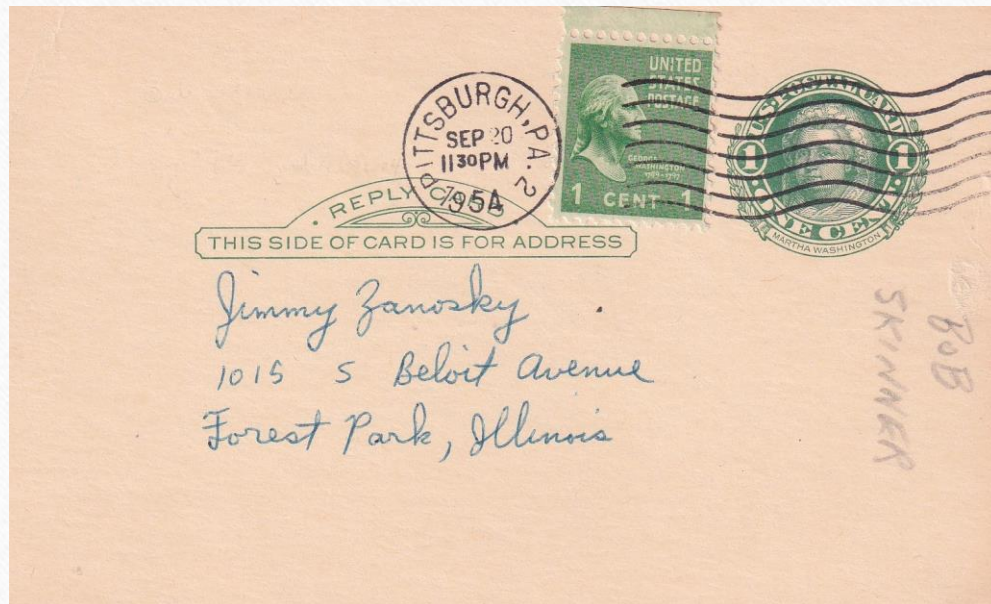 PITTSBURGH, PA. 2
SEP 20
11 30 PM
1954
UNITED
STATES
POSTAGE
GEORGE
WASHINGTON
1789-1797
1 CENT 1
U.S. POSTAL CARD
1 1
ONE CENT
MARTHA WASHINGTON
REPLY CARD
THIS SIDE OF CARD IS FOR ADDRESS
Jimmy Zanosky
1015 S Beloit Avenue
Forest Park, Illinois
BOB
SKINNER